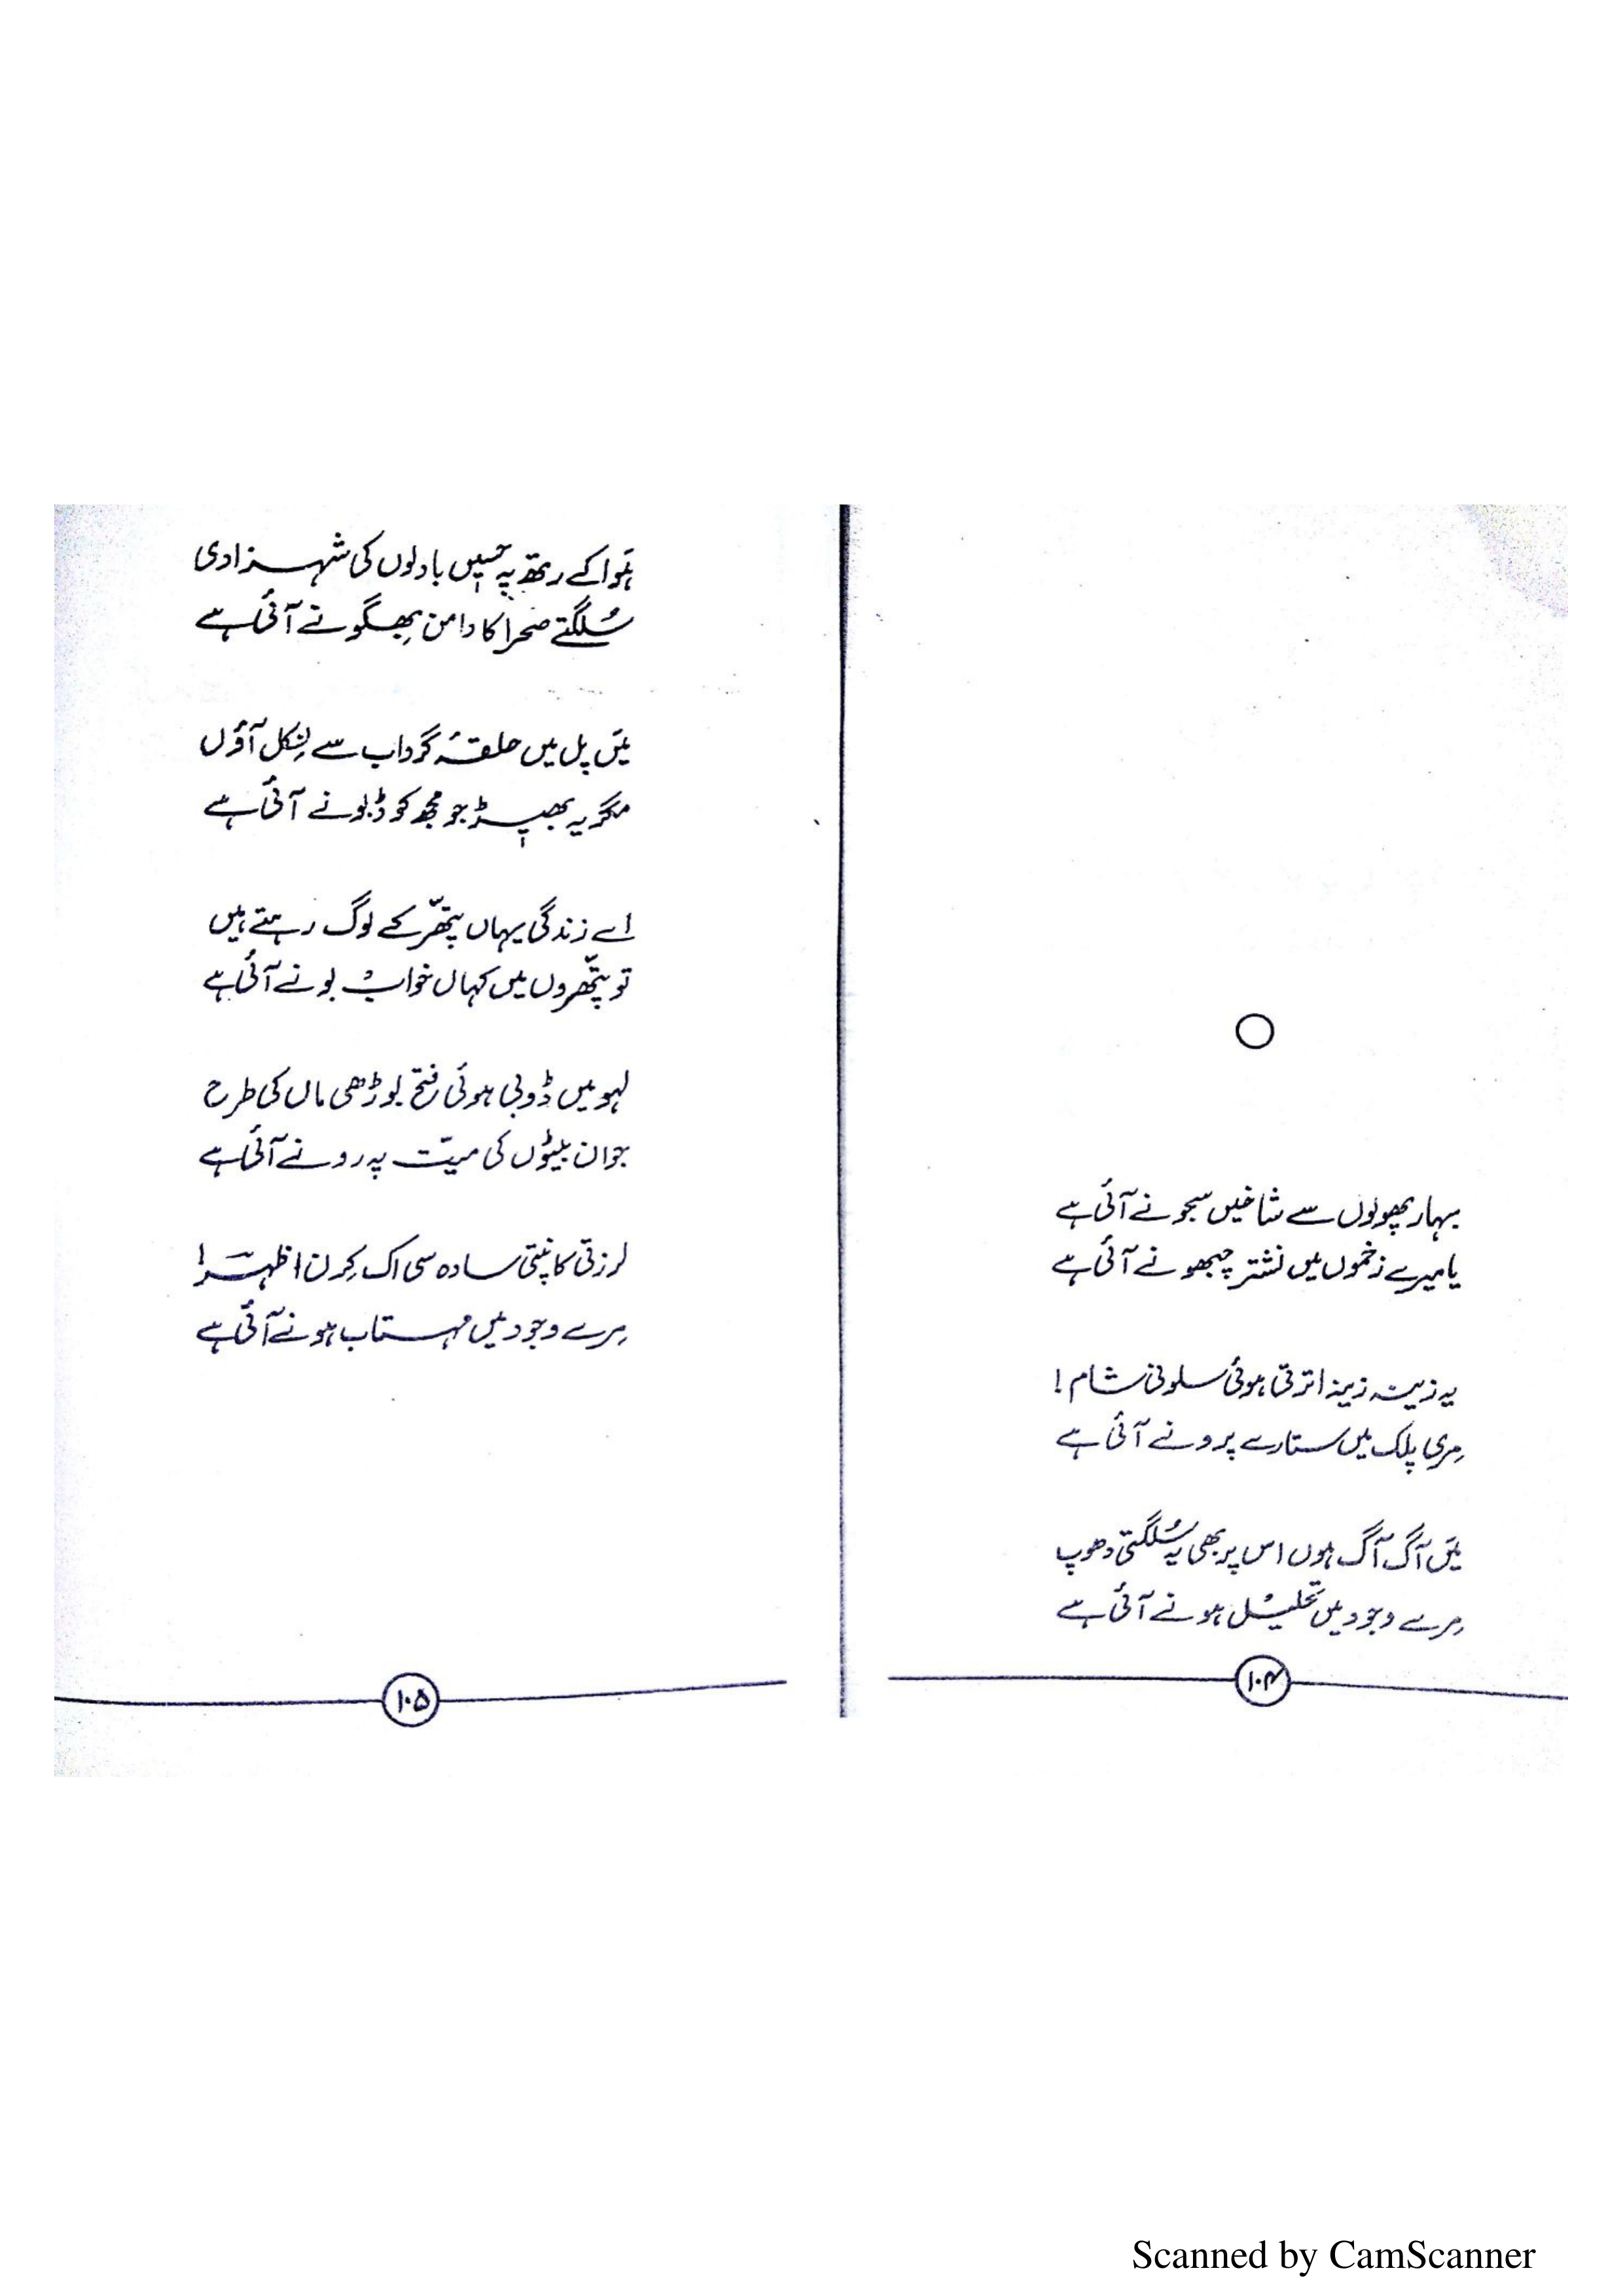 ○
بہار پھولوں سے شاخیں سجونے آئی ہے
یا میرے زخموں میں نشتر چبھونے آئی ہے
یہ زینہ زینہ اترتی ہوئی سلونی شام !
مِری پلک میں ستارے پرونے آئی ہے
مَیں آگ آگ ہوں اس پر بھی یہ سُلگتی دھوپ
مِرے وجود میں تحلیل ہونے آئی ہے
۱۰۴
ہَوا کے رتھ پہ حسیں بادلوں کی شہزادی
سُلگتے صحرا کا دامن بِھگونے آئی ہے
مَیں پل میں حلقۂ گرداب سے نِکل آؤں
مگر یہ بھیڑ جو مجھ کو ڈبونے آئی ہے
اے زندگی یہاں پتّھر کے لوگ رہتے ہیں
تو پتّھروں میں کہاں خواب بونے آئی ہے
لہو میں ڈوبی ہوئی فتح بوڑھی ماں کی طرح
جوان بیٹوں کی میّت پہ رونے آئی ہے
لرزتی کانپتی سادہ سی اک کِرن اظہر !
مِرے وجود میں مہتاب ہونے آئی ہے
۱۰۵
Scanned by CamScanner